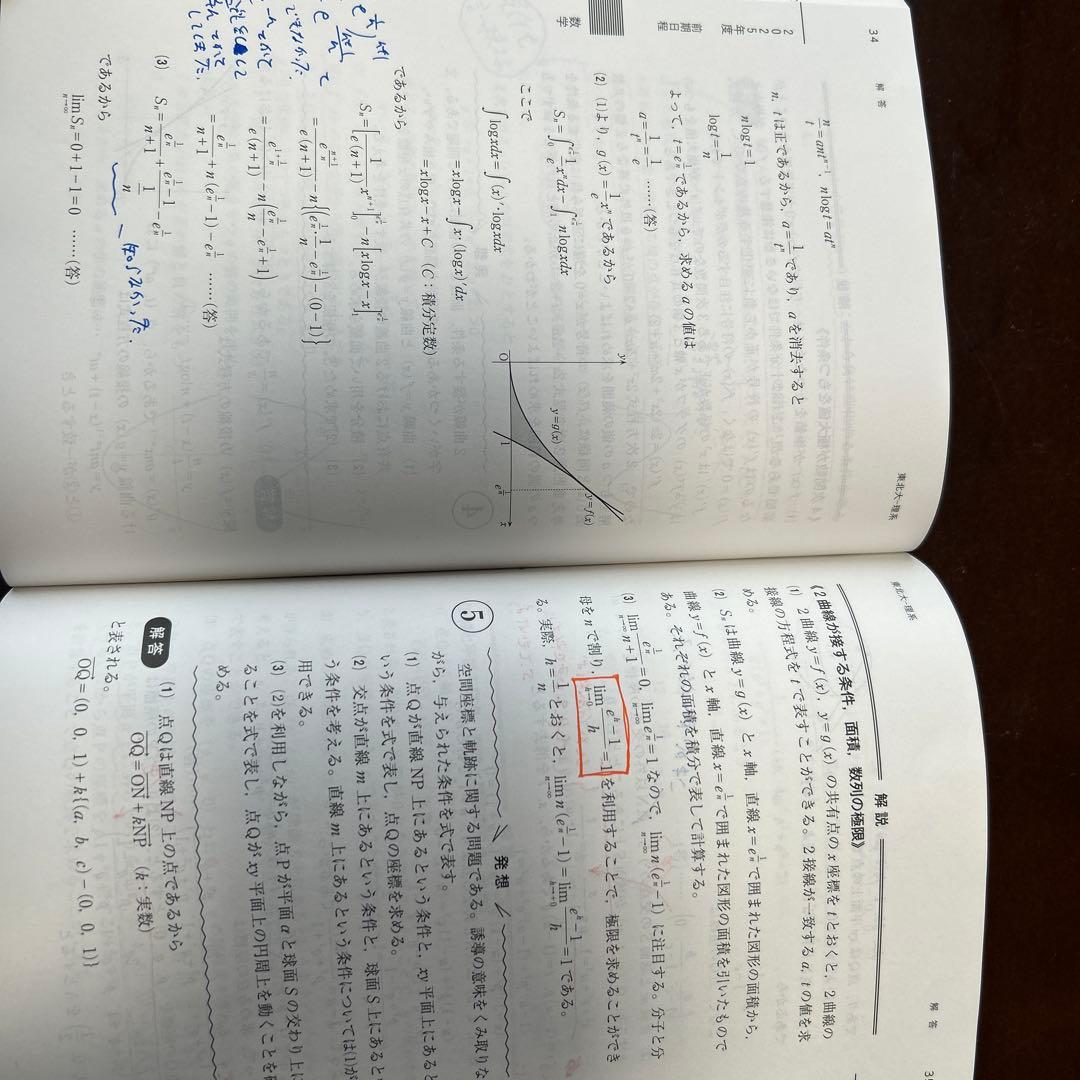 34 解答 東北大-理系
2025年度
前期日程
数学
n/t=ant^{n-1}, nlogt=at^n
n, tは正であるから, a=1/t^nであり, aを消去すると
nlogt=1
logt=1/n
よって, t=e^{1/n}であるから, 求めるaの値は
a=1/t^n=1/e ……(答)
(2) (1)より, g(x)=1/e x^nであるから
S_n=∫_0^{e^{1/n}} 1/e x^n dx-∫_1^{e^{1/n}} nlogxdx
ここで
∫logxdx=∫(x)'·logxdx
=xlogx-∫x·(logx)'dx
=xlogx-x+C (C:積分定数)
であるから
S_n=[1/e(n+1) x^{n+1}]_0^{e^{1/n}}-n[xlogx-x]_1^{e^{1/n}}
=e^{(n+1)/n}/e(n+1)-n{(e^{1/n}·1/n-e^{1/n})-(0-1)}
=e^{1+1/n}/e(n+1)-n(e^{1/n}/n-e^{1/n}+1)
=e^{1/n}/n+1+n(e^{1/n}-1)-e^{1/n} ……(答)
(3) S_n=e^{1/n}/n+1+e^{1/n}-1/(1/n)-e^{1/n}
であるから
知らなかった.
lim_{n→∞}S_n=0+1-1=0 ……(答)
y
y=g(x)
y=f(x)
O
1
e^{1/n}
x
東北大-理系 解答
解説
《2曲線が接する条件, 面積, 数列の極限》
(1) 2曲線y=f(x), y=g(x)の共有点のx座標をtとおくと, 2曲線の
接線の方程式をtで表すことができる。2接線が一致するa, tの値を求
める。
(2) S_nは曲線y=g(x)とx軸, 直線x=e^{1/n}で囲まれた図形の面積から,
曲線y=f(x)とx軸, 直線x=e^{1/n}で囲まれた図形の面積を引いたもので
ある。それぞれの面積を積分で表して計算する。
(3) lim_{n→∞}e^{1/n}/n+1=0, lim_{n→∞}e^{1/n}=1なので, lim_{n→∞}n(e^{1/n}-1)に注目する。分子と分
母をnで割り, lim_{h→0}e^h-1/h=1を利用することで, 極限を求めることができ
る。実際, h=1/nとおくと, lim_{n→∞}n(e^{1/n}-1)=lim_{h→+0}e^h-1/h=1である。
5
発想
空間座標と軌跡に関する問題である。誘導の意味をくみ取りな
がら, 与えられた条件を式で表す。
(1) 点Qが直線NP上にあるという条件と, xy平面上にあると
いう条件を式で表し, 点Qの座標を求める。
(2) 交点が直線m上にあるという条件と, 球面S上にあるとい
う条件を考える。直線m上にあるという条件については(1)が
用できる。
(3) (2)を利用しながら, 点Pが平面αと球面Sの交わり上に
ることを式で表し, 点Qがxy平面上の円周上を動くことを
める。
解答 (1) 点Qは直線NP上の点であるから
OQ=ON+kNP (k:実数)
と表される。
OQ=(0, 0, 1)+k{(a, b, c)-(0, 0, 1)}